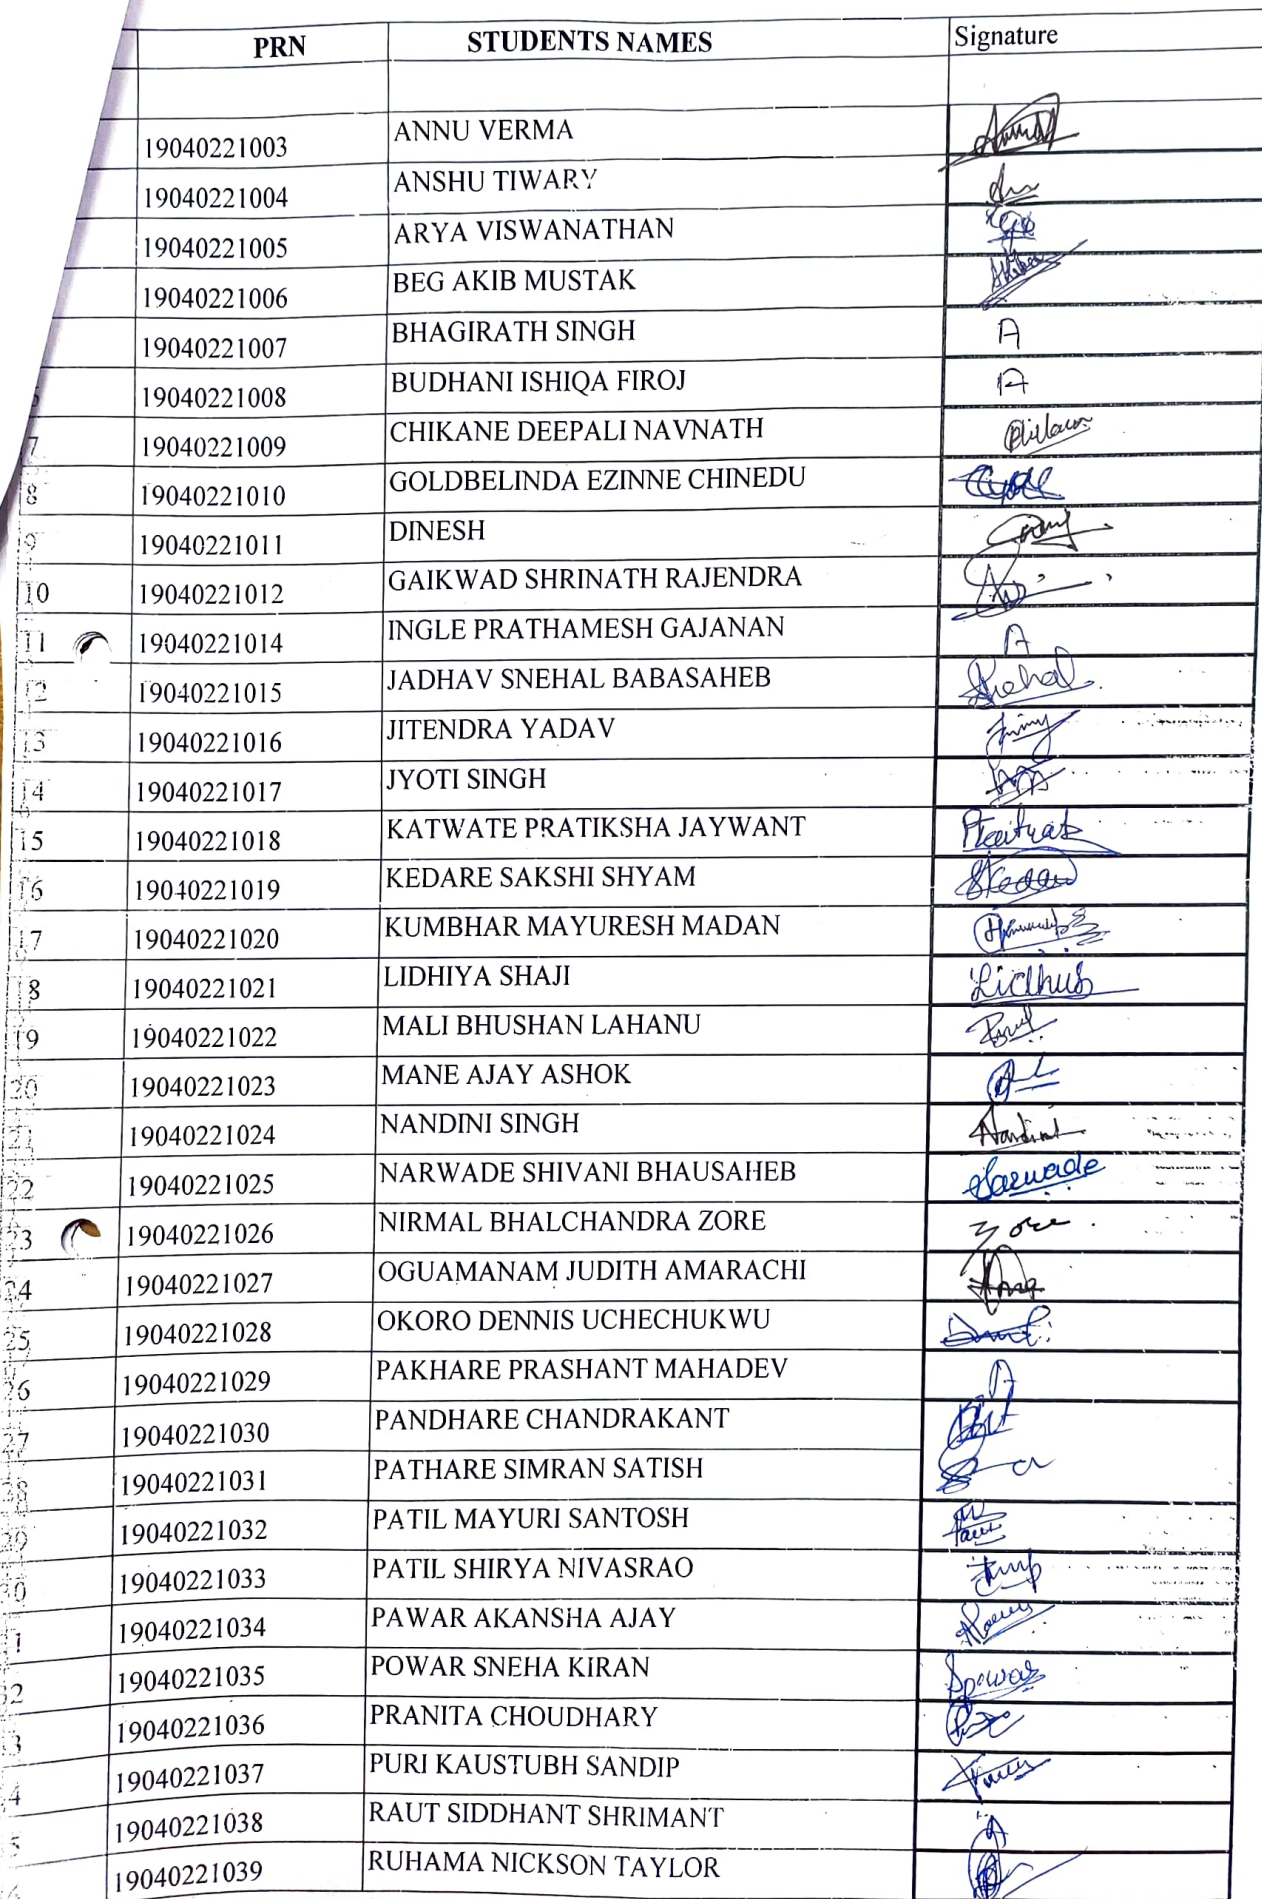 PRN STUDENTS NAMES Signature
19040221003 ANNU VERMA
19040221004 ANSHU TIWARY
19040221005 ARYA VISWANATHAN
19040221006 BEG AKIB MUSTAK
19040221007 BHAGIRATH SINGH A
19040221008 BUDHANI ISHIQA FIROJ A
7 19040221009 CHIKANE DEEPALI NAVNATH
8 19040221010 GOLDBELINDA EZINNE CHINEDU
9 19040221011 DINESH
10 19040221012 GAIKWAD SHRINATH RAJENDRA
11 19040221014 INGLE PRATHAMESH GAJANAN A
12 19040221015 JADHAV SNEHAL BABASAHEB Snehal
13 19040221016 JITENDRA YADAV
14 19040221017 JYOTI SINGH
15 19040221018 KATWATE PRATIKSHA JAYWANT
16 19040221019 KEDARE SAKSHI SHYAM
17 19040221020 KUMBHAR MAYURESH MADAN
18 19040221021 LIDHIYA SHAJI
19 19040221022 MALI BHUSHAN LAHANU
20 19040221023 MANE AJAY ASHOK
21 19040221024 NANDINI SINGH Nandini
22 19040221025 NARWADE SHIVANI BHAUSAHEB Narwade
23 19040221026 NIRMAL BHALCHANDRA ZORE Zore
24 19040221027 OGUAMANAM JUDITH AMARACHI
25 19040221028 OKORO DENNIS UCHECHUKWU
26 19040221029 PAKHARE PRASHANT MAHADEV A
27 19040221030 PANDHARE CHANDRAKANT
28 19040221031 PATHARE SIMRAN SATISH
29 19040221032 PATIL MAYURI SANTOSH
30 19040221033 PATIL SHIRYA NIVASRAO
1 19040221034 PAWAR AKANSHA AJAY
2 19040221035 POWAR SNEHA KIRAN
3 19040221036 PRANITA CHOUDHARY
4 19040221037 PURI KAUSTUBH SANDIP
5 19040221038 RAUT SIDDHANT SHRIMANT A
19040221039 RUHAMA NICKSON TAYLOR